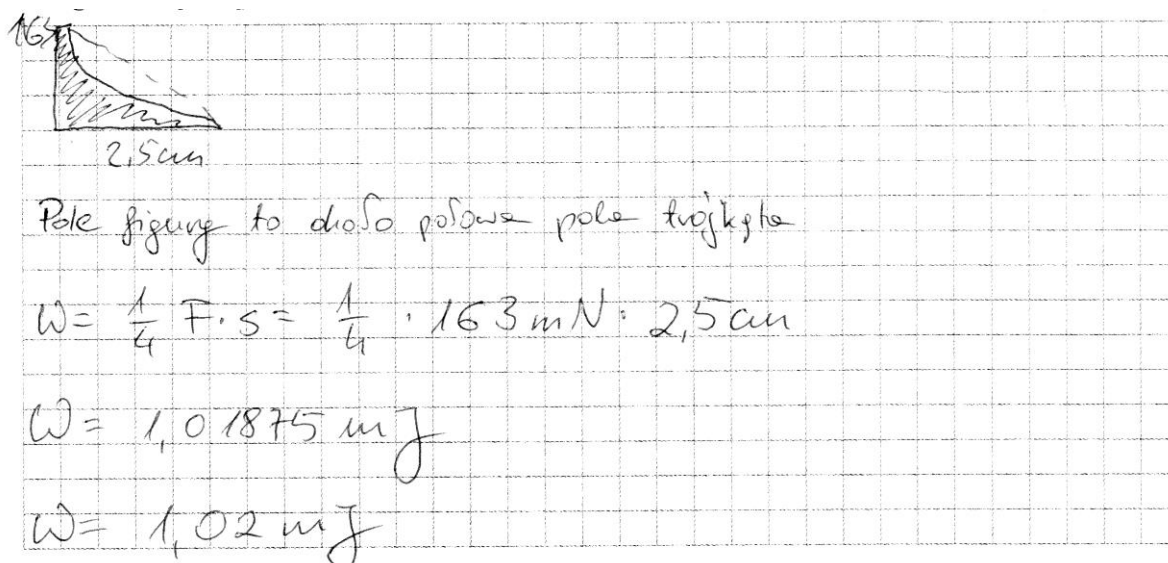 163
2,5cm
Pole figury to około połowa pola trójkąta
W = 1/4 F·s = 1/4 · 163 mN · 2,5 cm
W = 1,01875 mJ
W = 1,02 mJ